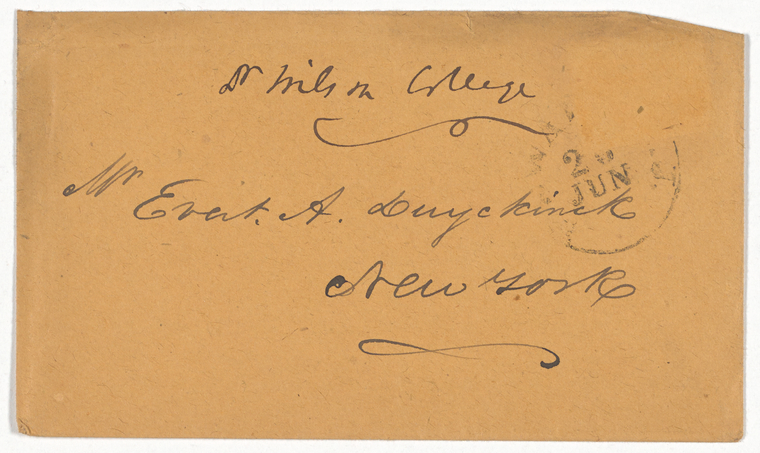 Dr Wilson College
Mr Evert. A. Duyckinck
New York
JUN